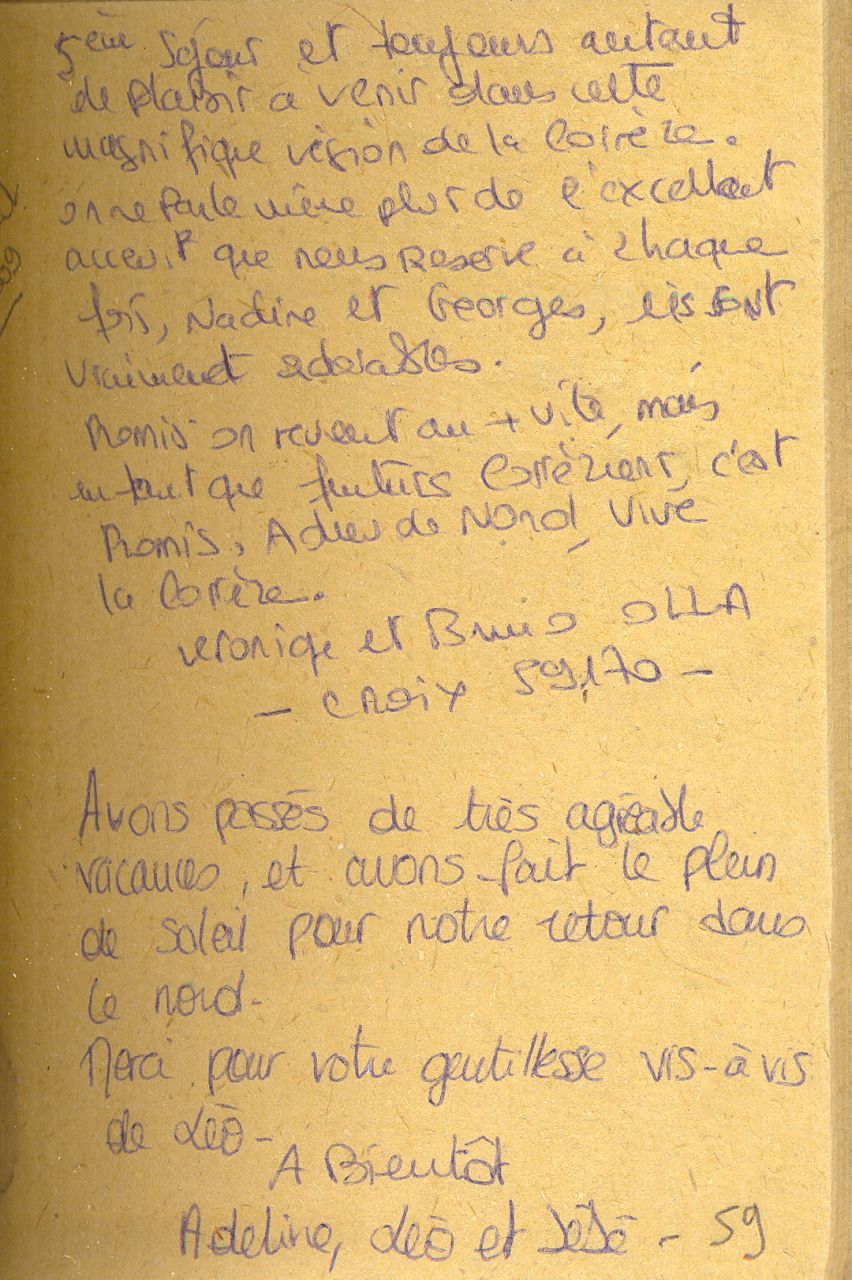 5ème séjour et toujours autant
de plaisir à venir dans cette
magnifique région de la Corrèze.
on ne parle même plus de l'excellent
accueil que nous reserve à chaque
fois, Nadine et Georges, ils sont
vraiment adorables.
Promis on revient au + vite, mais
en tant que futurs Corréziens, c'est
Promis, Adieu de Nord, Vive
la Corrèze.
veroniqe et Bruno OLLA
- CROIX 59170 -
Avons passés de très agréable
vacances, et avons fait le plein
de soleil pour notre retour dans
le nord-
Merci pour votre gentillesse vis-à vis
de Léo-
A Bientôt
Adeline, Léo et - 59